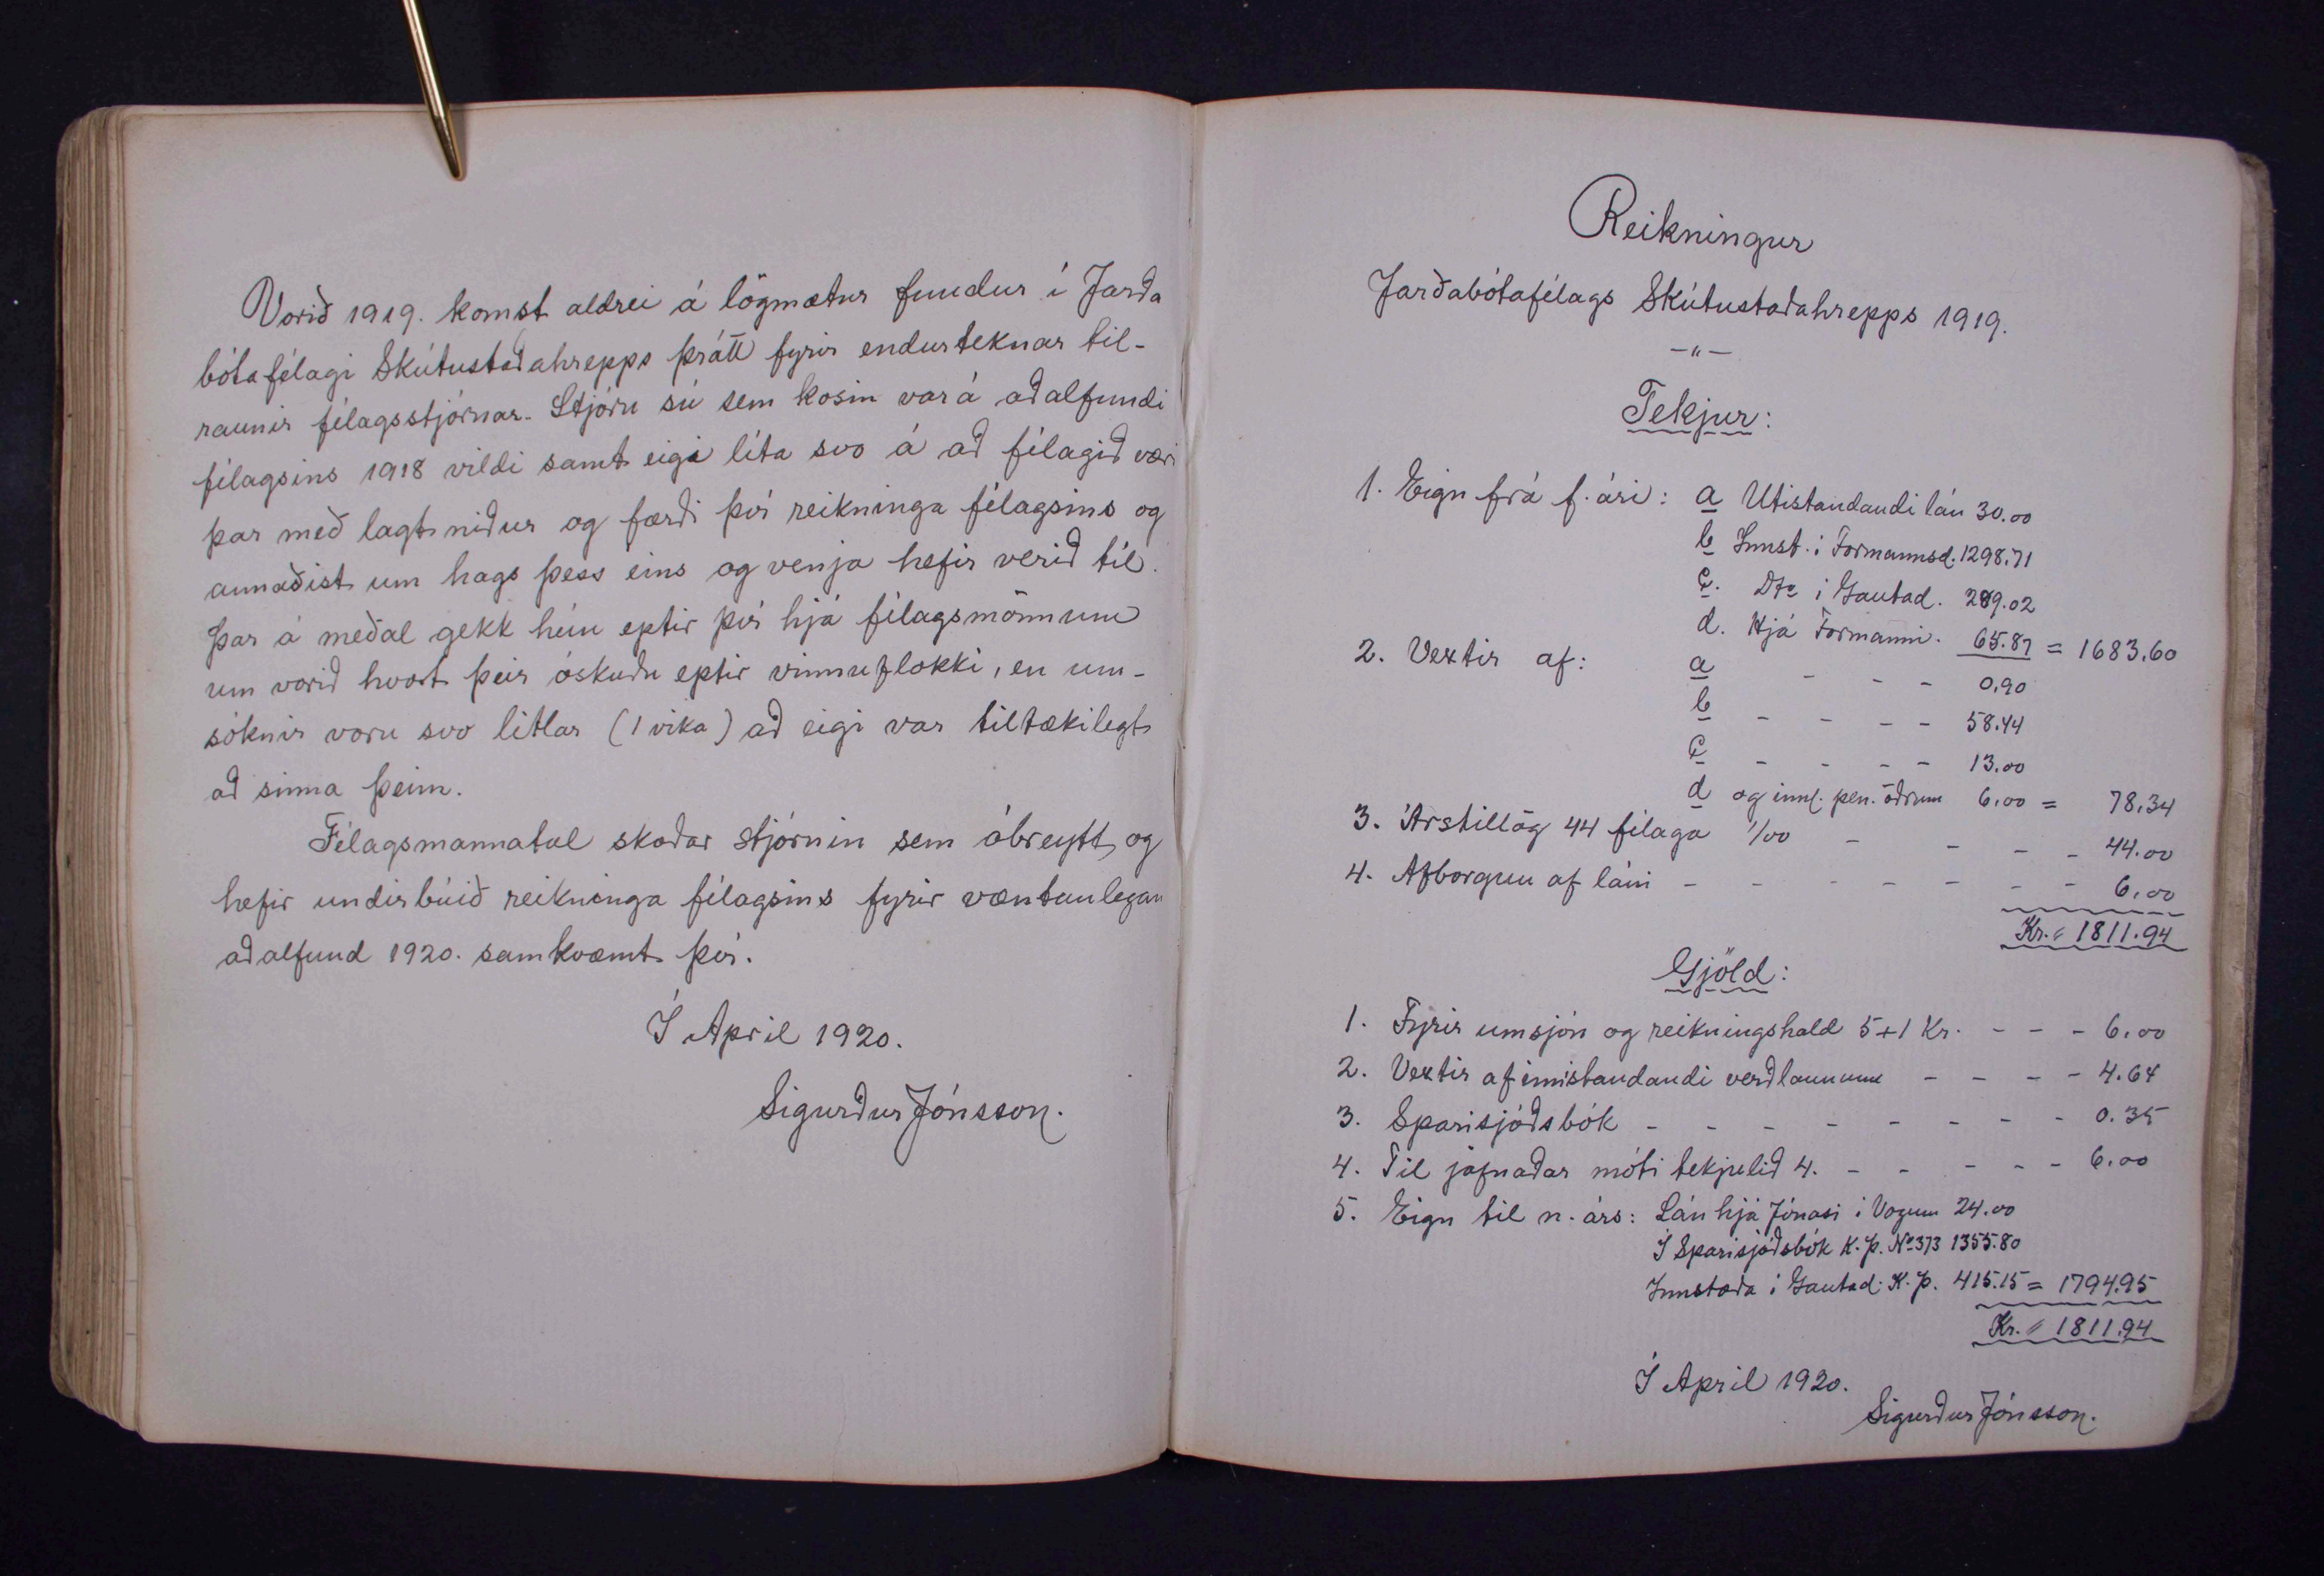 Vorið 1919. komst aldrei á lögmætur fundur í Jarða
bótafélagi Skútustaðahrepps þrátt fyrir endurteknar til-
raunir félagsstjórnar. Stjórn sú sem kosin var á aðalfundi
félagsins 1918 vildi samt eigi líta svo á að félagið væri
þar með lagt niður og færði því reikninga félagsins og
annaðist um hags þess eins og venja hefir verið til.
Þar á meðal gekk hún eptir því hjá félagsmönnum
um vorið hvort þeir óskuðu eptir vinnuflokki, en um-
sóknir voru svo litlar (1 vika) að eigi var tiltækilegt
að sinna þeim.
Félagsmannatal skoðar stjórnin sem óbreytt, og
hefir undirbúið reikninga félagsins fyrir væntanlegan
aðalfund 1920. samkvæmt því.
Í Apríl 1920.
Sigurður Jónsson.
Reikningur
Jarðabótafélags Skútustaðahrepps 1919.
-"-
Tekjur:
1. Eign frá f. ári: a Utistandandi lán 30.00
b Innst. í Formannsd. 1298.71
c. Dto í Gautad. 289.02
d. Hjá Formanni. 65.87 = 1683.60
2. Vextir af: a - - - 0.90
b - - - - 58.44
c - - - - 13.00
d og innl. pen. öðrum 6.00 = 78.34
3. Árstillög 44 félaga 1/00 - - - - 44.00
4. Afborgun af láni - - - - - - - 6.00
Kr. " 1811.94
Gjöld:
1. Fyrir umsjón og reikningshald 5+1 Kr. - - - 6.00
2. Vextir af innistandandi verðlaunum - - - - 4.64
3. Sparisjóðsbók - - - - - - - - 0.35
4. Til jafnaðar móti tekjulið 4. - - - - - 6.00
5. Eign til n. árs: Lán hjá Jónasi í Vogum 24.00
Í Sparisjóðsbók K.Þ. No 373 1355.80
Innstæða í Gautad. K.Þ. 415.15 = 1794.95
Kr. " 1811.94
Í Apríl 1920.
Sigurður Jónsson.